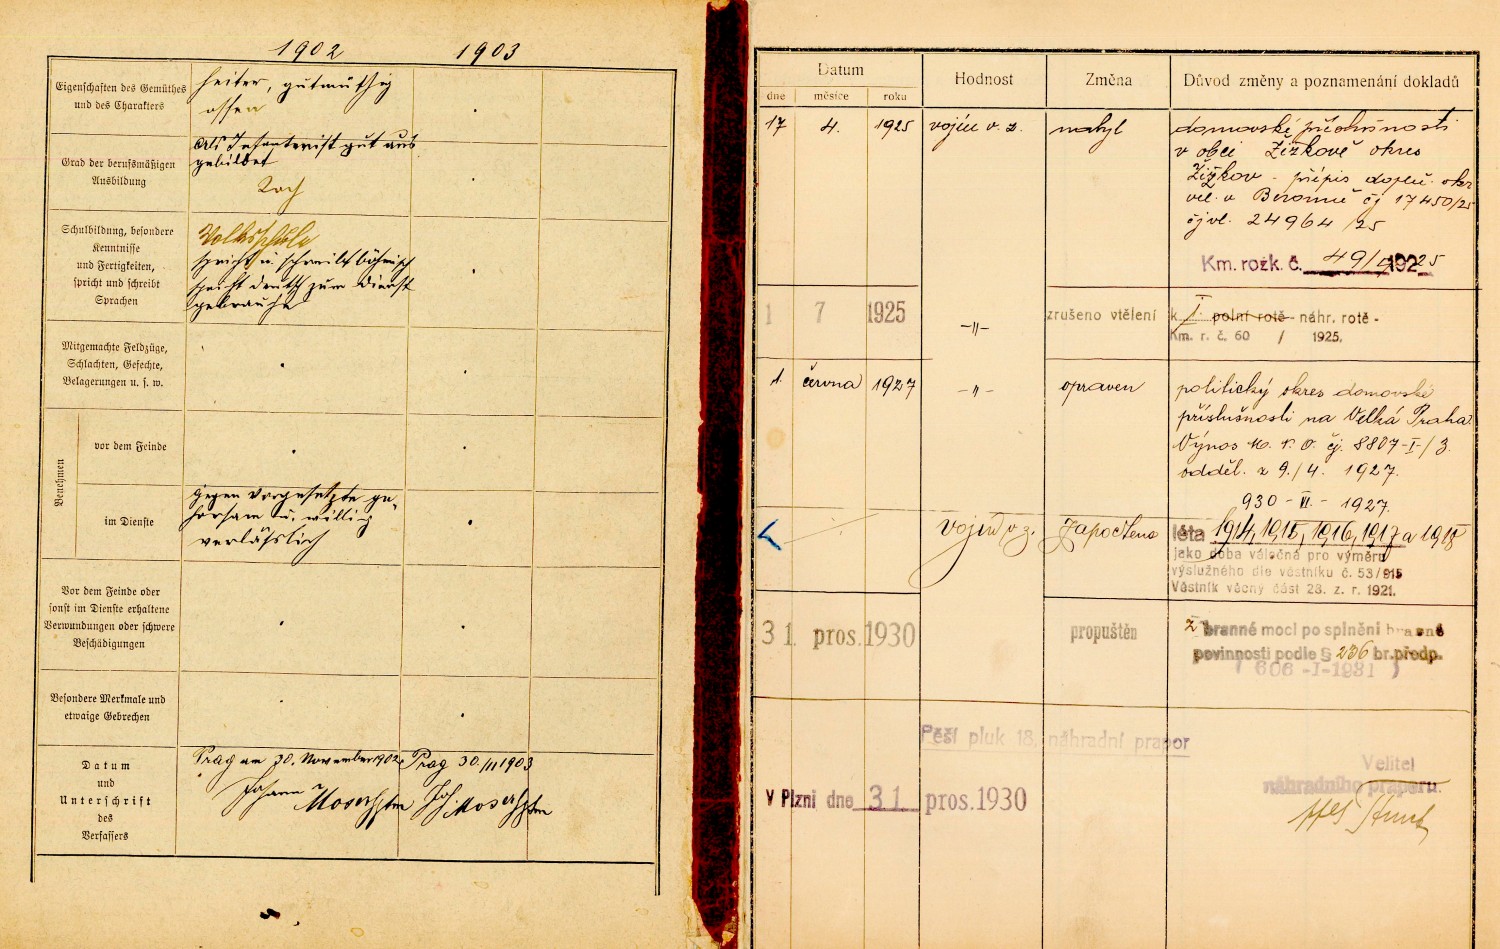 1902 1903
Eigenschaften des Gemüthes
und des Charakters
heiter, gutmüthig
offen
Grad der berufsmäßigen
Ausbildung
als Infanterist gut aus
gebildet
Koch
Schulbildung, besondere
Kenntnisse
und Fertigkeiten,
spricht und schreibt
Sprachen
Volksschule
spricht u. schreibt böhmisch
spricht deutsch zum Dienst
gebrauche
Mitgemachte Feldzüge,
Schlachten, Gefechte,
Belagerungen u. s. w.
Benehmen
vor dem Feinde
im Dienste
gegen Vorgesetzte ge-
horsam u. willig
verläßlich
Vor dem Feinde oder
sonst im Dienste erhaltene
Verwundungen oder schwere
Beschädigungen
Besondere Merkmale und
etwaige Gebrechen
Datum
und
Unterschrift
des
Verfassers
Prag am 30. November 1902
Johann Moser Hptm
Prag 30./11 1903
Joh. Moser Hptm
Datum Hodnost Změna Důvod změny a poznamenání dokladů
dne měsíce roku
17 4. 1925 vojín v. z. nabyl domovské příslušnosti
v obci Žižkově okres
Žižkov - přípis doplň. okr.
vel. v Berouně čj 17450/25
čj vl. 24964/25
Km. rozk. č. 49/ 1925
1 7 1925 -"- zrušeno vtělení k I. polní rotě - náhr. rotě -
Km. r. č. 60 / 1925.
1. června 1927 -"- opraven politický okres domovské
příslušnosti na Velká Praha.
Výnos M. N. O. čj. 8807-I-/3.
odděl. z 9./4. 1927.
930 - VI. - 1927.
vojín v z. Započtena léta 1914, 1915, 1916, 1917 a 1918
jako doba válečná pro výměru
výslužného dle věstníku č. 53/915
Věstník věcný část 28. z. r. 1921.
31. pros. 1930 propuštěn z branné moci po splnění branné
povinnosti podle § 236 br. předp.
( 606 -I-1931 )
Pěší pluk 18, náhradní prapor
V Plzni dne 31 pros. 1930
Velitel
náhradního praporu.